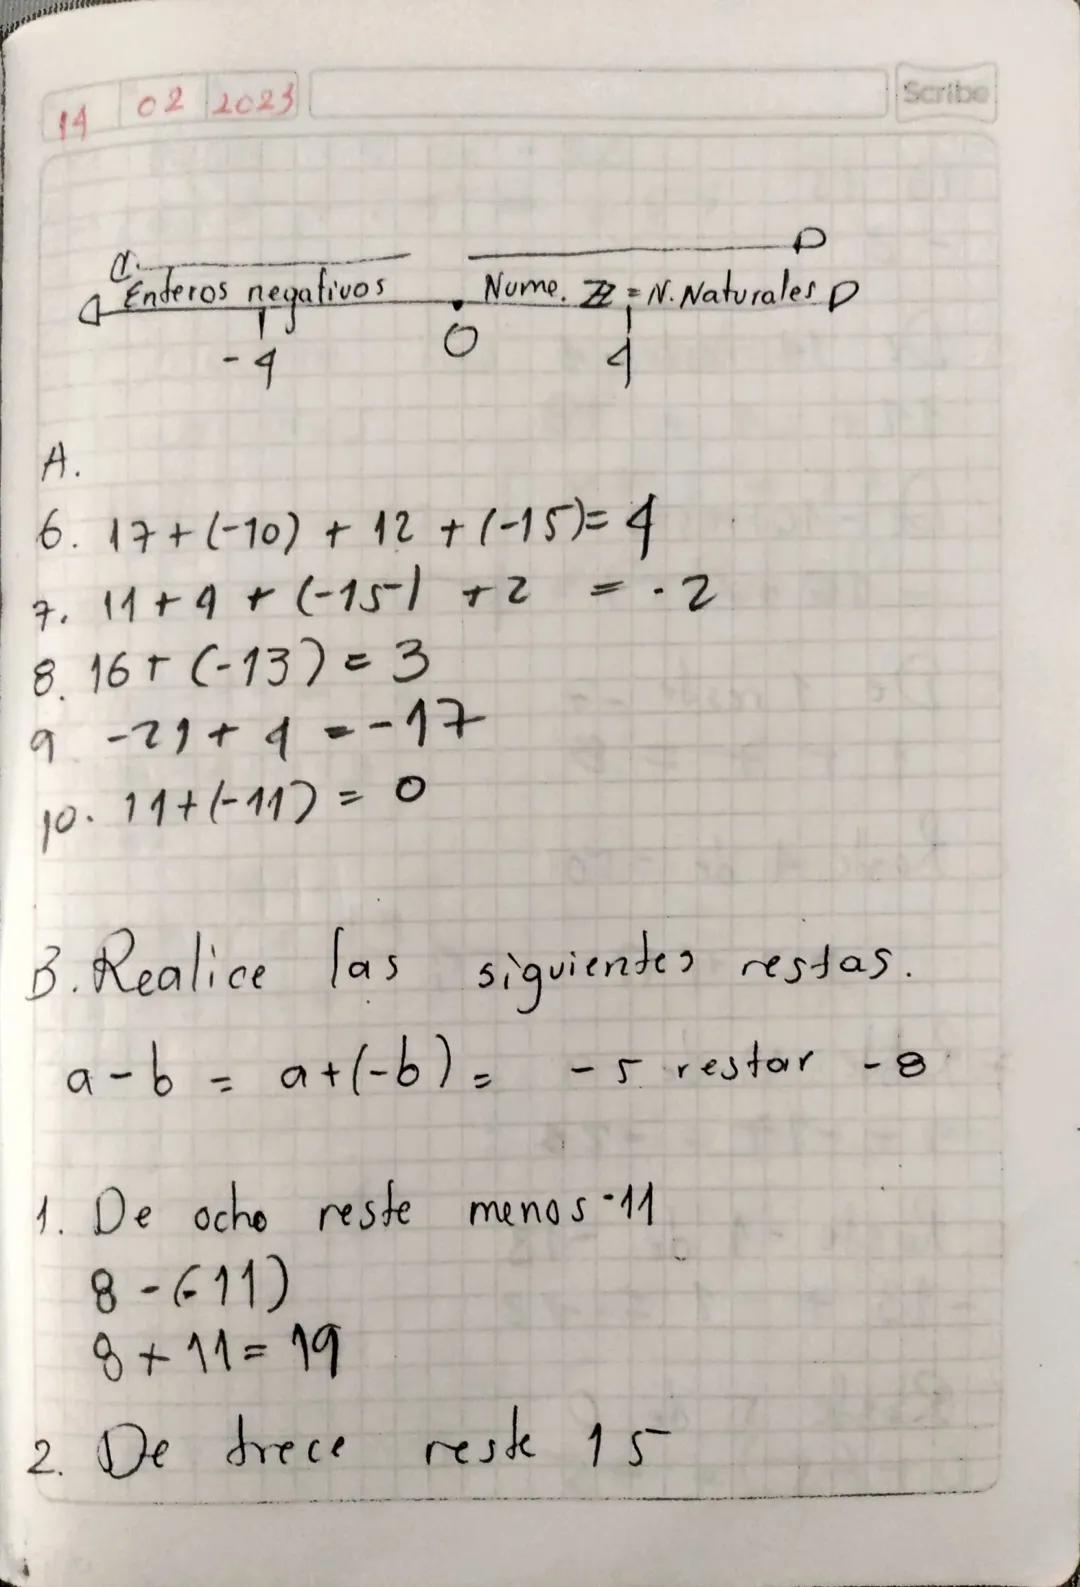 14 02 2023
Scribe
Enteros negativos Nume. ℤ = N. Naturales
-4 0 4
A.
6. 17+(-10) + 12 + (-15)= 4
7. 11+4 + (-15) +2 = -2
8. 16+ (-13) = 3
9 -21+ 4 = -17
10. 11+(-11) = 0
B. Realice las siguientes restas.
a-b = a+(-b) = -5 restar -8
1. De ocho reste menos -11
8 -(-11)
8 + 11 = 19
2. De trece reste 15